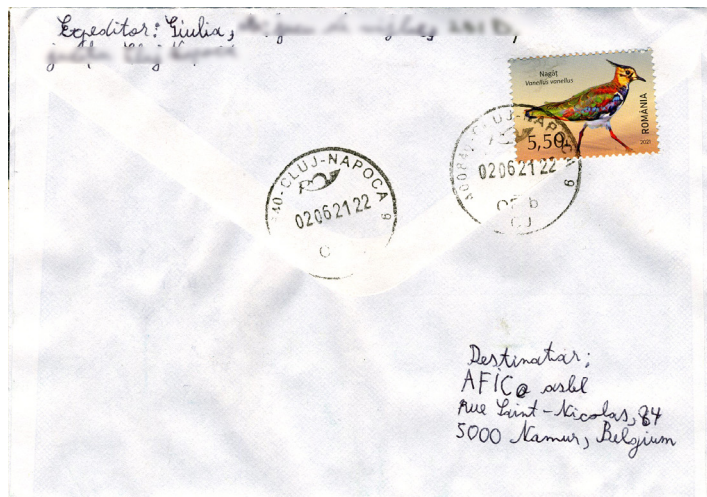 Expeditor: Giulia,
Nagâț
Vanellus vanellus
5,50
ROMÂNIA
2021
CLUJ-NAPOCA 9
02062122
400840-CLUJ-NAPOCA 9
02062122
OF. b
CJ
Destinatar:
AFICo asbl
rue Saint-Nicolas, 84
5000 Namur, Belgium